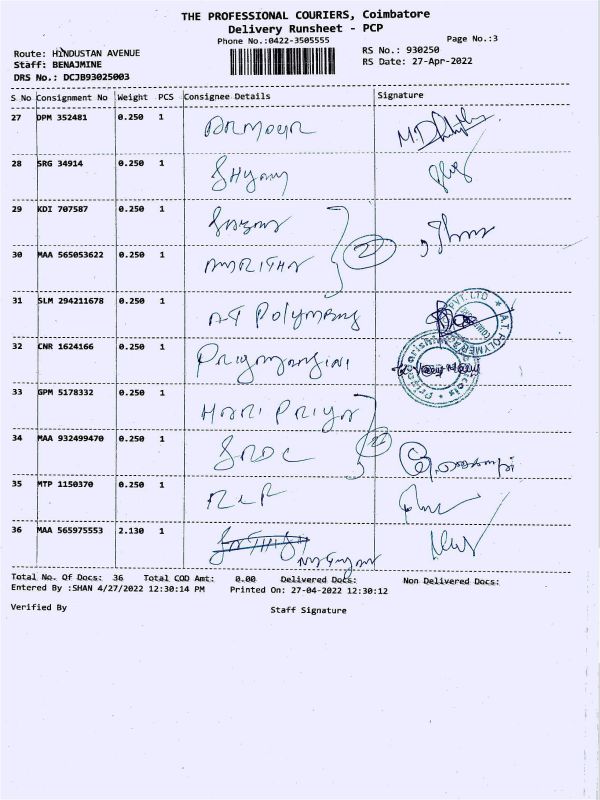 THE PROFESSIONAL COURIERS, Coimbatore
Delivery Runsheet - PCP
Phone No.:0422-3505555
Page No.:3
Route: HINDUSTAN AVENUE
RS No.: 930250
Staff: BENAJMINE
RS Date: 27-Apr-2022
DRS No.: DCJB93025003
S No Consignment No Weight PCS Consignee Details Signature
27 DPM 352481 0.250 1 ARMOUR
28 SRG 34914 0.250 1
29 KDI 707587 0.250 1
30 MAA 565053622 0.250 1 AMRITHA
31 SLM 294211678 0.250 1 AT Polymers
32 CNR 1624166 0.250 1
33 GPM 5178332 0.250 1 HARI PRIYA
34 MAA 932499470 0.250 1
35 MTP 1150370 0.250 1
36 MAA 565975553 2.130 1
Total No. Of Docs: 36 Total COD Amt: 0.00 Delivered Docs: Non Delivered Docs:
Entered By :SHAN 4/27/2022 12:30:14 PM Printed On: 27-04-2022 12:30:12
Verified By Staff Signature